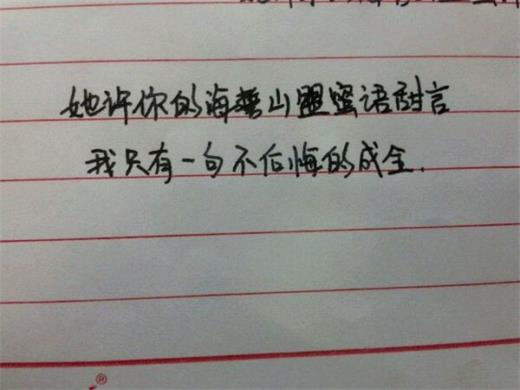 她许你的海誓山盟蜜语甜言
我只有一句不后悔的成全.
®